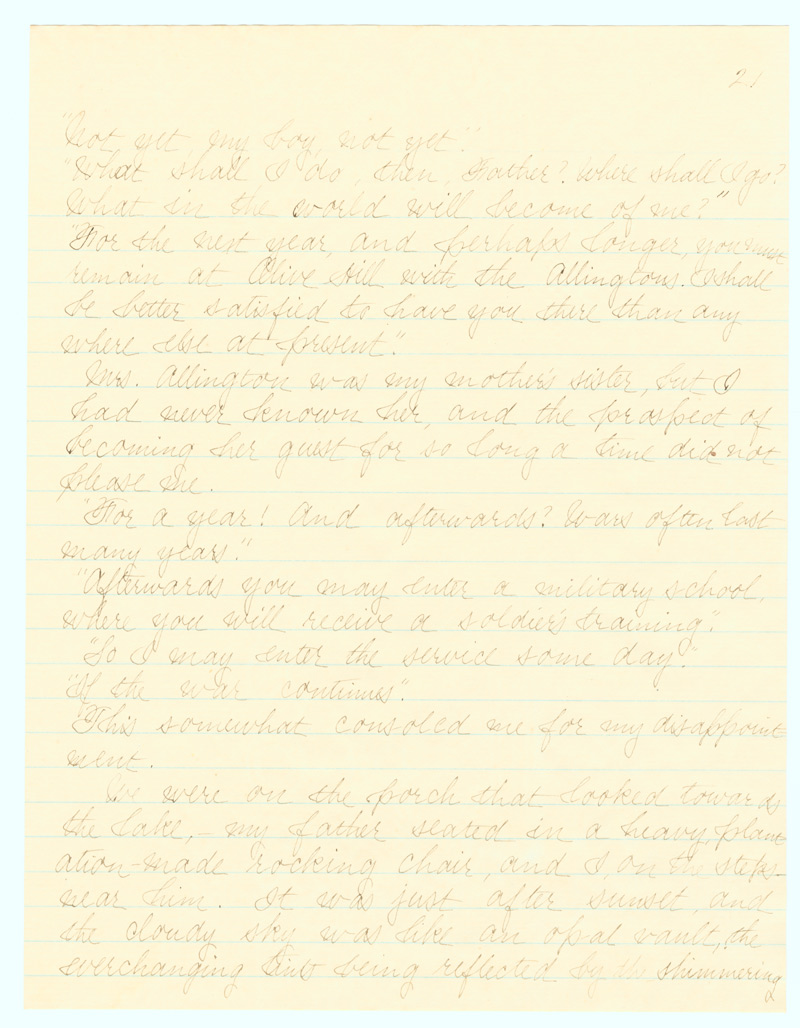 21
"Not yet, my boy, not yet."
"What shall I do, then, Father? Where shall I go?
What in the world will become of me?"
"For the next year, and perhaps longer, you must
remain at Olive Hill with the Allingtons. I shall
be better satisfied to have you there than any
where else at present."
Mrs. Allington was my mother's sister, but I
had never known her, and the prospect of
becoming her guest for so long a time did not
please me.
"For a year! And afterwards? Wars often last
many years."
"Afterwards you may enter a military school,
where you will receive a soldier's training."
"So I may enter the service some day."
"If the war continues".
This somewhat consoled me for my disappoint
ment.
We were on the porch that looked towards
the lake,– my father seated in a heavy, plant
ation-made rocking chair, and I, on the steps
near him. It was just after sunset, and
the cloudy sky was like an opal vault, the
everchanging tints being reflected by the shimmering